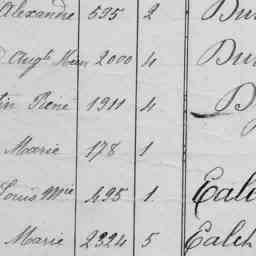 Alexandre 595 2 Du
Augte 2000 4 Du
tin René 1911 4 D
Marie 178 1
Louis Mie 495 1 Eal
Marie 2324 5 Ealch